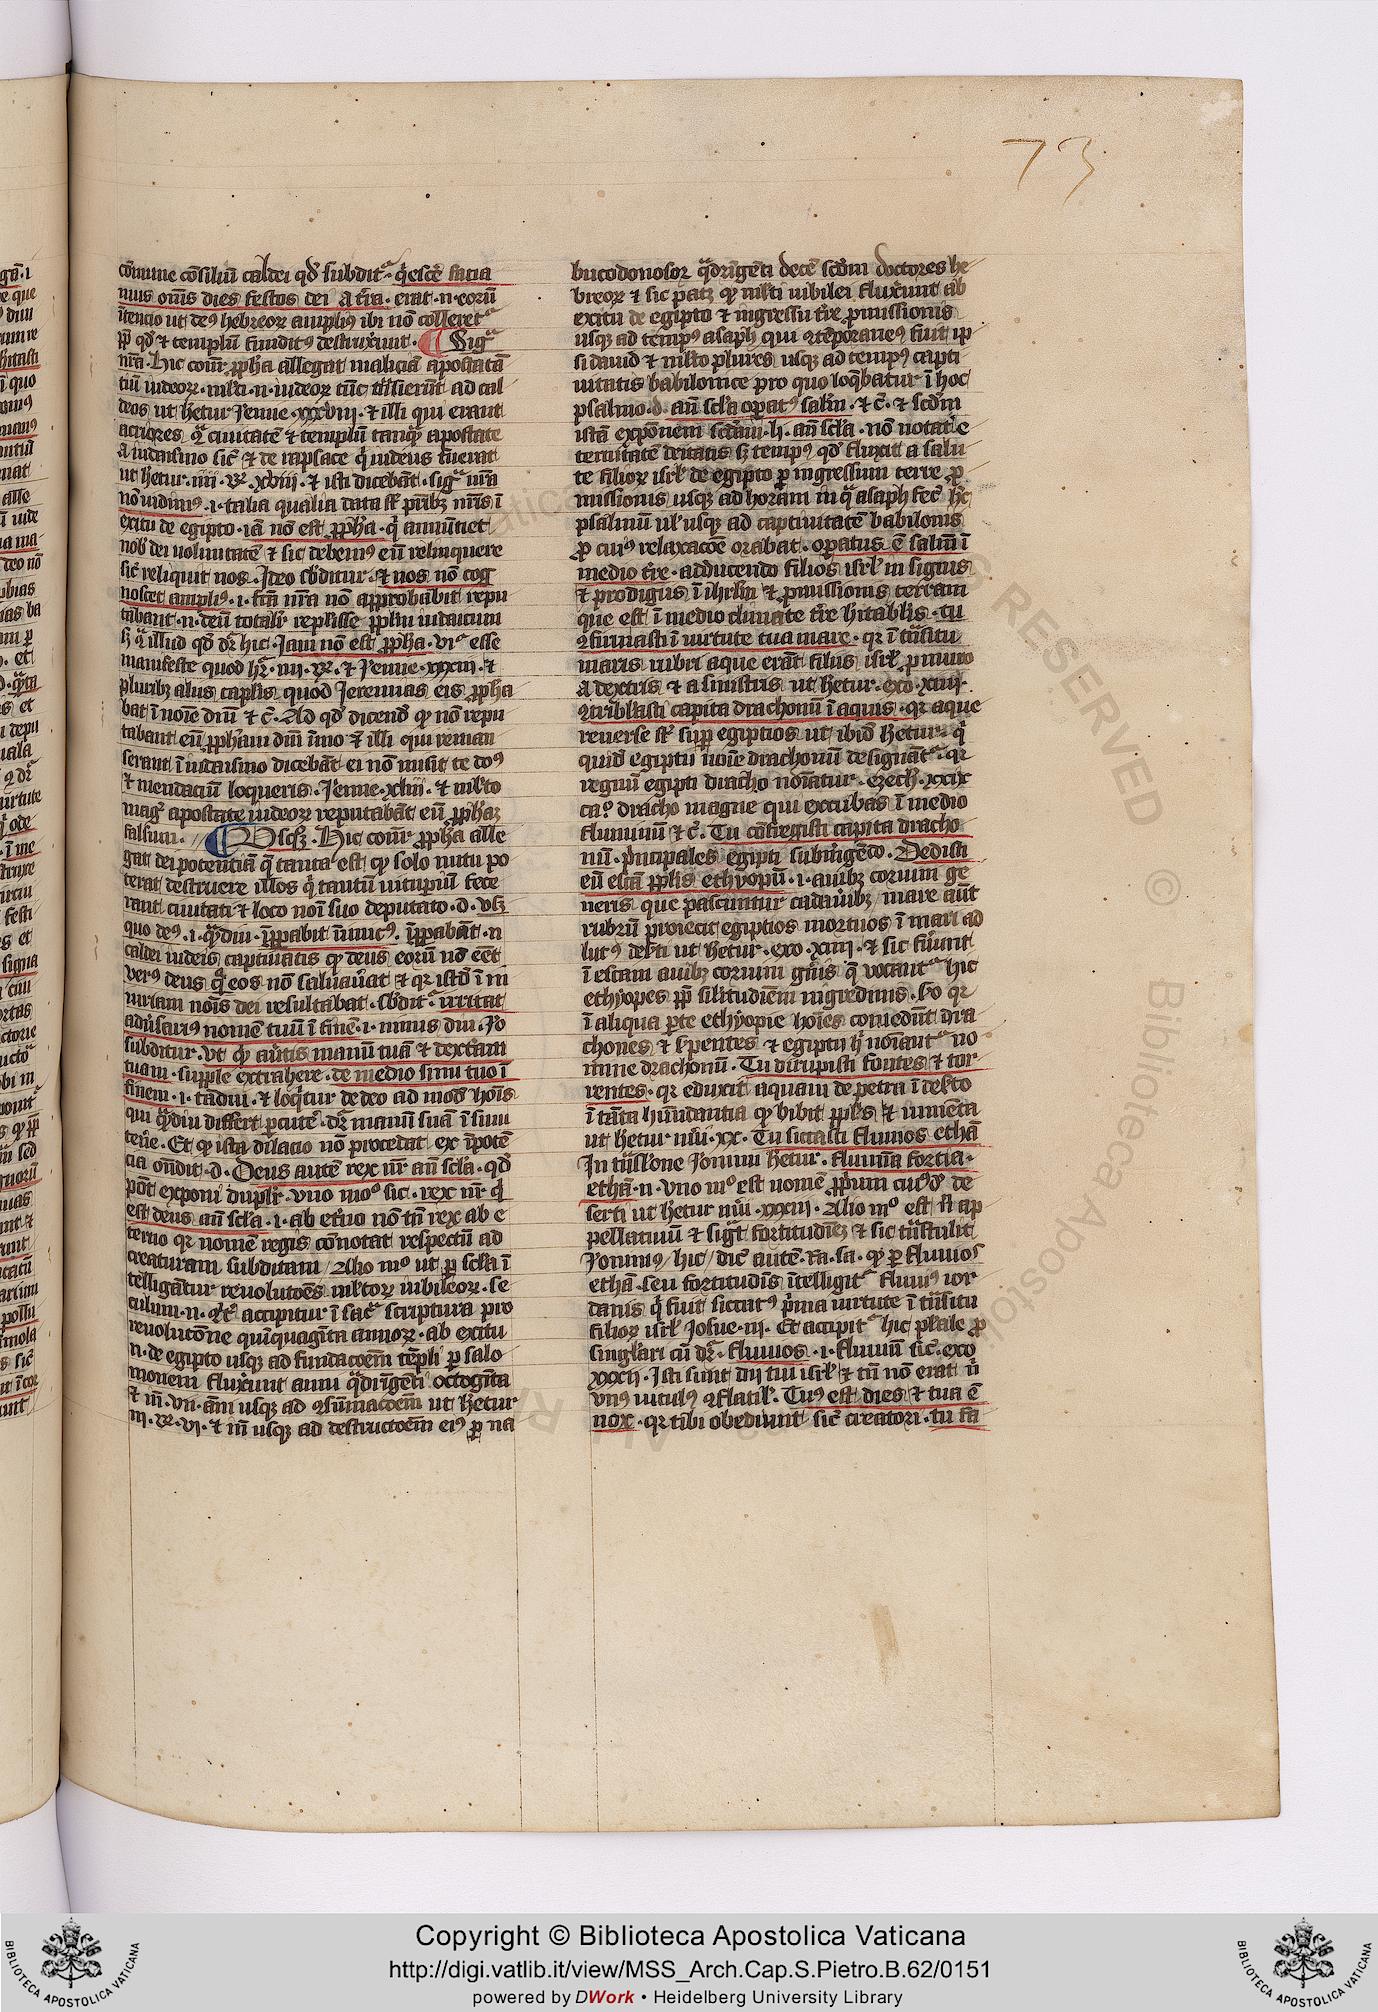 73
cōmune cōsiliū caldei qď subdit᷒ · q̇escē facia
mus om̄s dies festos dei a t̄ra · erat · n · eorū
ītencio ut de⁹ hebreoꝝ amplius ibi nō colleret᷒
pp̄ qď ⁊ templū fundit⁹ destruxūnt · ¶ Sigᷓ
nr̄a · Hic cōnr̄ ꝓpha allegat maliciā apostatā
tiū iudeoꝝ · ml̄ti · n · iudeoꝝ tūc trāsierūt ad cal
deos ut hetur Jeremie · xxxviii · ⁊ illi qui erant
actiores qᷓ ciuitatē ⁊ templū tanqᷓ apostate
a iudaismo sic̄ ⁊ de rapsace q̇ iudeus fuerat
ut hetur · iiii · ꝶ · xviii · ⁊ isti dicebāt · sigᷓ nr̄a
nō uidim⁹ · i · talia qualia data sūt pr̄ibꝫ nr̄is ī
exitu de egipto · iā nō est ꝓpha · q̇ annūtiet
nob̄ dei uoluntatē ⁊ sic debem⁹ eū relinquere
sic̄ reliquit nos · Ideo sb̄ditur · ⁊ nos nō cog
noscet ampli⁹ · i · fc̄a nr̄a nō approbabit repu
tabant · n · deū totalr̄ reples̄se ppl̄m iudaicum
sꝫ q̇ illud qď dr̄ hic · Iam nō est ꝓpha · vr̄ esse
manifeste quod hr̄ · iiii · ꝶ · ⁊ Jeremie · xxxiii · ⁊
pluribꝫ aliis capl̄is quod Jeremias eis ꝓpha
bat ī noīe dn̄i ⁊ c̄ · Ad qď dicend̄ ꝙ nō repu
tabant eū ꝓpham dn̄i īmo ⁊ illi qui reman
serant ī iudaismo dicebāt ei nō misit te do⁹
⁊ mendaciū loqueris · Jeremie · xliii · ⁊ ml̄to
magᷓ apostate iudeoꝝ reputabāt eū ꝓpham
falsum · // ¶ Vsqꝫ · Hic cōnr̄ ꝓpha alle
gat dei potentiā q̄ tanta est ꝙ solo nutu po
terat destruere illos q̇ tantū uitupiū fece
rant ciuitati ⁊ loco noī suo deputato · d · vsqꝫ
quo de⁹ · i · qᷓdiu · īpp̄abit īimic⁹ · īpp̄abāt · n
caldei iudeis captiuatis ꝙ deus eorū nō eēt
ver⁹ deus qᷓ eos nō saluauit ⁊ qr̄ istď ī in
iuriam noīs dei resultabat · sb̄dit᷒ · irritat
adu̇sarius nomē tuū ī finē · i · nimis diu · Io
subditur · vt qͥ au̇tis manū tuā ⁊ dextam
tuam · supple extrahere · de medio sinu tuo ī
finem · i · tādiu · ⁊ loqᷓtur de deo ad modū hoīs
qui qᷓdiu differt ꝑcute᷑ · dr̄ manū suā ī sinu
tene᷑ · Et ꝙ ista dilacio nō procedat ex īpotē
cia ondit · d · Deus autē rex nr̄ an̄ scl̄a · qď
pōt exponi dupl̄r · vno mo⁰ sic · rex nr̄ · q̇
est deus an̄ scl̄a · i · ab et̄no nō tn̄ rex ab e
terno qr̄ nomē regis cōnotat respectū ad
creaturam subditam / Alio mo⁰ ut ꝑ scl̄a ī
telligātur reuolutōes ml̄toꝝ iubileoꝝ · se
culum · n · qn̄qꝫ accipitur ī sacᷓ scriptura pro
reuolutōne quīquagīta annoꝝ · ab exitu
n · de egipto usqꝫ ad fundacōem tēpli ꝑ salo
monem fluxunt anni qᷓdrīgēti octogīta
⁊ īn · vii · am̄ usqꝫ ad ꝯsūmacōem ut hetur
iii · ꝶ · vi · ⁊ īn usqꝫ ad destructōem ei⁹ ꝑ na
bucodonosor qᷓdrīgēti decē scd̄m doctores he
breoꝝ ⁊ sic patꝫ ꝙ ml̄ti iubilei fluxunt ab
exitu de egipto ⁊ ingressu t̄re ꝓmissionis
usqꝫ ad temp⁹ asaph qui ꝯtēporane⁹ fuit ip
si dauid ⁊ ml̄to plures usqꝫ ad temp⁹ capti
uitatis babilonice pro quo loqᷓbatur ī hoc
psalmo · d · an̄ scl̄a opat⁹ salm̄ · ⁊ c̄ · ⁊ scd̄m
istā expōnem scd̄am · li · an̄ scl̄a · nō notat e
ternitatē deitatis sꝫ temp⁹ qď fluxit a salu
te filioꝝ isrl̄ de egipto ꝑ ingressum terre ꝓ
missionis usqꝫ ad horam in qᷓ asaph fec̄ hc̄
psalmū ul̄ usqꝫ ad captiuitatē babilonis
ꝓ cui⁹ relaxacōe orabat · opatus ē salm̄ ī
medio t̄re · adducendo filios isrl̄ in signis
⁊ prodigiis ī ihrl̄m ⁊ ꝓmissionis terram
que est ī medio climate t̄re hītabilis · tu
ꝯfirmasti ī uirtute tua mare · qr̄ ī trāsitu
maris rubri aque erāt filiis isrl̄ ꝓ muro
a dextris ⁊ a sinistris ut hetur · exo · xiiii ·
ꝯtribl̄asti capita drachonū ī aquis · qr̄ aque
reuerse sūt sup egiptios ut ibid̄ hetur · q̇
quid̄ egiptii noīe drachonū designāt᷒ · qr̄
regnū egipti dracho noīatur · ezech · xxix
ca⁰ · dracho magne qui excubas ī medio
fluminū ⁊ c̄ · Tu cōfregisti capita dracho
nū · p̄ncipales egipti submergēdo · Dedisti
eū escā ppl̄is ethyopū · i · auibꝫ coruini ge
neris que pascuntur cadau̇ibꝫ / mare aūt
rubrū proiecit egiptios mortuos ī mari ad
lut⁹ deserti ut hetur · exo · xiiii · ⁊ sic fūunt
ī escam auibꝫ coruini gn̄is q̄ vocant᷒ hic
ethyopes pp̄ sil̄itudiēm nigredinis · so qr̄
ī aliqua ꝑte ethyopie hoīes comedūt dra
chones ⁊ sꝑentes ⁊ egiptii hͥ noīant᷒ no
mine drachonū · Tu dirupisti fontes ⁊ tor
rentes · qr̄ eduxit aquam de petra ī deserto
ī tāta habūdantia ꝙ bibit ppl̄s ⁊ iumēta
ut hetur nūi · xx · Tu siccasti fluuios ethā
In trāsl̄one Jeronimi hetur · flumīa fortia ·
ethā · n · vno mo⁰ est nomē ꝓprium cuiusď de
serti ut hetur nūi · xxxiii · Alio mo⁰ est n̄ ap
pellatiuū ⁊ sigᷓt fortitudinē ⁊ sic trāstulit
Jeronim⁹ / hic / dic̄ autē · Ra · sa · ꝙ ꝑ fluuios
ethā · seu fortitudīs ītelligit᷒ fluui⁹ ior
danis q̇ fuit siccat⁹ p̄ma uirtute ī trāsitu
filioꝝ isrl̄ Josue · iii · Et accipit᷒ hic pl̄ale ꝓ
singl̄ari cū dr̄ · fluuios · i · fluuiū sic̄ · exo
xxxii · Isti sunt dii tui isrl̄ ⁊ tn̄ nō erat ni
vn⁹ uitul⁹ ꝯflatil᷑ · Tu⁹ est dies ⁊ tua ē
nox · qr̄ tibi obediunt sic̄ creatori · tu fa
Copyright © Biblioteca Apostolica Vaticana
http://digi.vatlib.it/view/MSS_Arch.Cap.S.Pietro.B.62/0151
powered by DWork • Heidelberg University Library
BIBLIOTECA APOSTOLICA VATICANA
BIBLIOTECA APOSTOLICA VATICANA